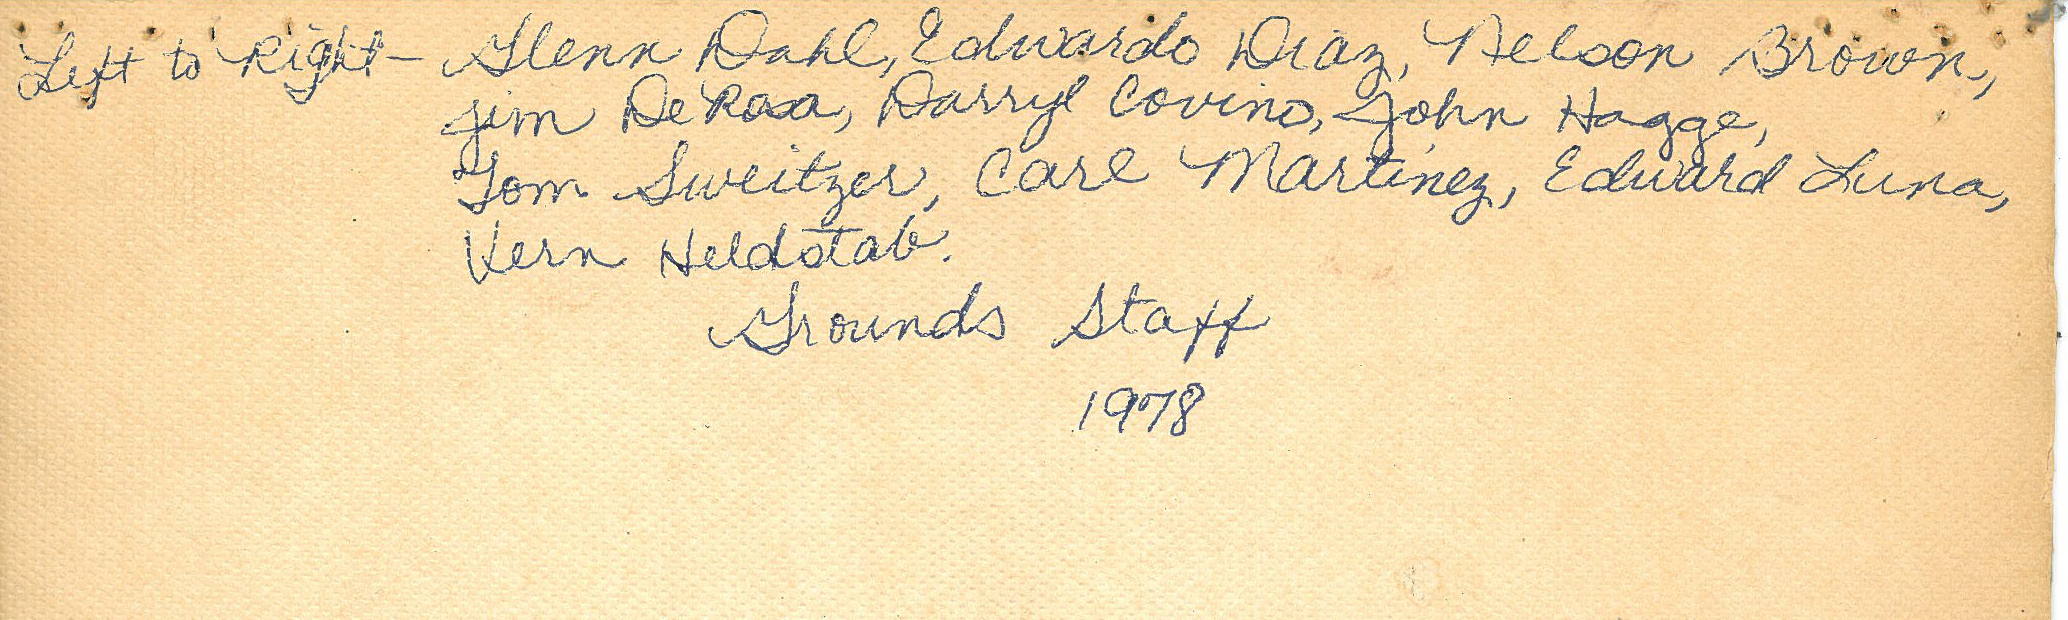 Left to Right - Glenn Dahl, Edwardo Diaz, Nelson Brown,
Jim DeRosa, Darryl Covino, John Hagge,
Tom Sweitzer, Carl Martinez, Edward Luna,
Vern Heldstab.
Grounds Staff
1978